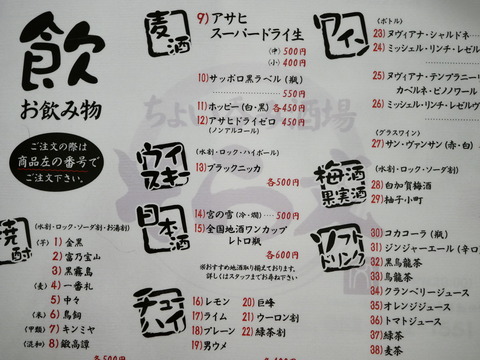 飲
お飲み物
ご注文の際は
商品左の番号で
ご注文下さい。
焼酎
(水割・ロック・ソーダ割・お湯割)
(芋) 1) 金黒
2) 富乃宝山
3) 黒霧島
(麦) 4) 一番札
5) 中々
(米) 6) 鳥飼
(甲類) 7) キンミヤ
(混和) 8) 鍛高譚
各500円
麦酒
9) アサヒ
スーパードライ生
(中) 500円
(小) 400円
10) サッポロ黒ラベル (瓶)
550円
11) ホッピー (白・黒) 各450円
12) アサヒドライゼロ 450円
(ノンアルコール)
ウイスキー
(水割・ロック・ハイボール)
13) ブラックニッカ
各500円
日本酒
14) 宮の雪 (冷・燗) … 500円
15) 全国地酒ワンカップ
レトロ瓶
各600円
※おすすめ地酒取り揃えております。
詳しくはスタッフまでお尋ね下さい。
チューハイ
16) レモン 20) 巨峰
17) ライム 21) ウーロン割
18) プレーン 22) 緑茶割
19) 男ウメ
各500円
ワイン
(ボトル)
23) ヌヴィアナ・シャルドネ
24) ミッシェル・リンチ・レゼル
25) ヌヴィアナ・テンプラニー
カベルネ・ピノノワール
26) ミッシェル・リンチ・レゼルヴ
(グラスワイン)
27) サン・ヴァンサン (赤・白)
梅酒
果実酒
28) 白加賀梅酒
29) 柚子小町
ソフトドリンク
30) コカコーラ (瓶)
31) ジンジャーエール (辛口
32) 黒烏龍茶
33) 烏龍茶
34) クランベリージュース
35) オレンジジュース
36) トマトジュース
37) 緑茶
38) 麦茶